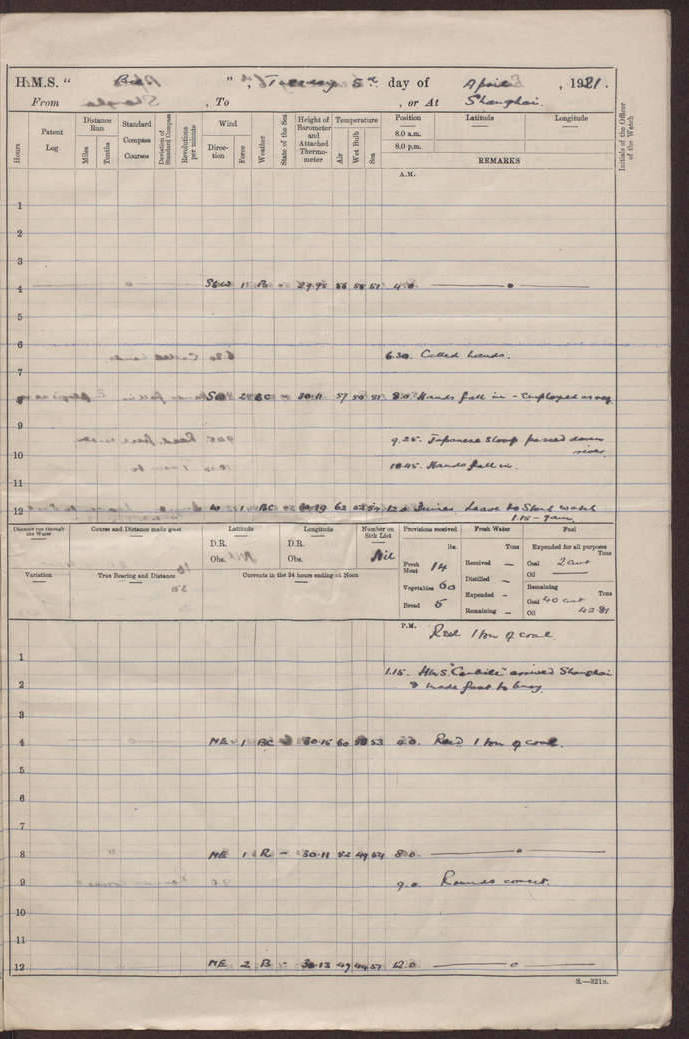 H.M.S. " Bee " , Tuesday 5th day of April , 1921.
From , To , or At Shanghai.
Hours
Patent Log
Distance Run
Miles
Tenths
Standard Compass Courses
Deviation of Standard Compass
Revolutions per minute
Wind
Direction
Force
Weather
State of the Sea
Height of Barometer and Attached Thermometer
Temperature
Air
Wet Bulb
Sea
Position
8.0 a.m.
8.0 p.m.
Latitude
Longitude
REMARKS
Initials of the Officer of the Watch
A.M.
1
2
3
4 1 29.95 58 4.0
5
6
6.30. Called hands.
7
8 2 BC 30.11 57 50 51 8.0 Hands fall in - Employed as req
9
9.25. Japanese Sloop passed down river.
10
10.45. Hands fall in.
11
12 W 1 BC Leave to Stbd watch
1.15 - 7am
Distance run through the Water
Course and Distance made good
Latitude
D.R.
Obs.
Longitude
D.R.
Obs.
Number on Sick List
Nil
Provisions received
lbs.
Fresh Meat 14
Vegetables 60
Bread 5
Fresh Water
Tons
Received —
Distilled —
Expended —
Remaining —
Fuel
Expended for all purposes
Tons
Coal 2 cwt
Oil —
Remaining
Tons
Coal 40 cwt
Oil 42.81
Variation
True Bearing and Distance
Currents in the 24 hours ending at Noon
P.M.
Recd 1 ton of coal
1
1.15. HMS "Carlisle" arrived Shanghai
2 & made fast to buoy.
3
4 NE 1 BC 30.15 60 53 4.0. Recd 1 ton of coal.
5
6
7
8 NE 1 R - 30.11 52 49 54 8.0
9
9.0. Rounds correct.
10
11
12 NE 2 B - 30.13 49 12.0
S.—321s.